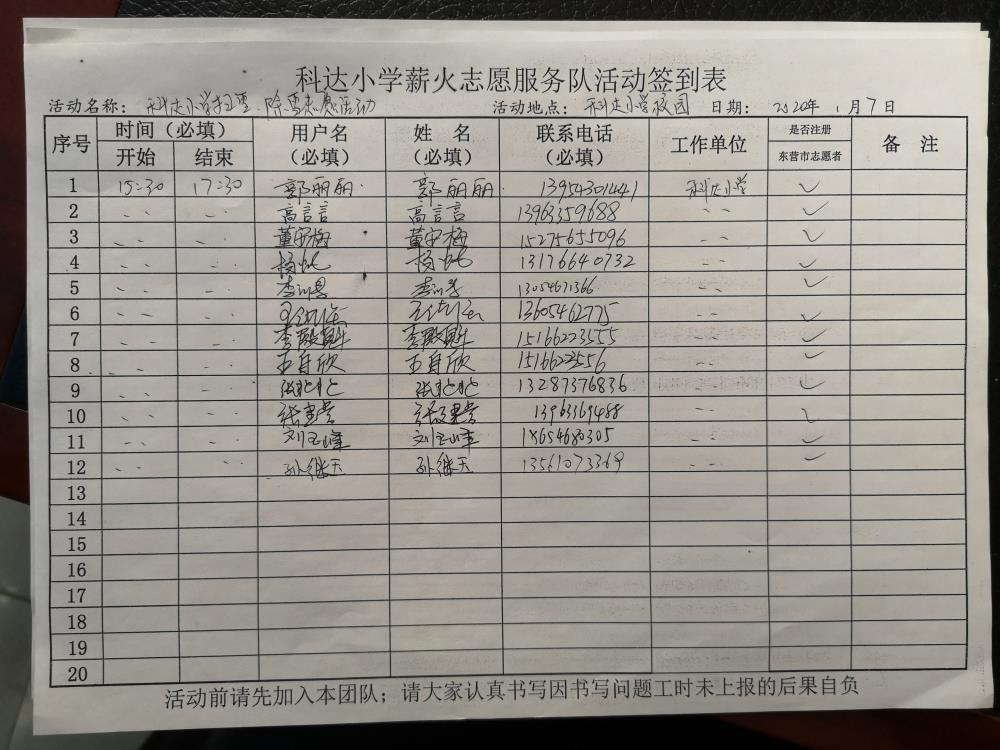 科达小学薪火志愿服务队活动签到表
活动名称： 科达小学扫雪 除雪志愿活动 活动地点： 科达小学校园 日期： 2020年 1月7日
序号 时间（必填） 用户名（必填） 姓 名（必填） 联系电话（必填） 工作单位 是否注册 备 注
开始 结束 东营市志愿者
1 15:30 17:30 郭丽丽 郭丽丽 13954301441 科达小学 ✓
2 高言言 高言言 13963359688 ✓
3 董安梅 董安梅 15275655096 ✓
4 杨 杨 13176640732 ✓
5 李 李 13054671366 ✓
6 王 王 13605462775 ✓
7 李殿魁 李殿魁 15166223555 ✓
8 王自欣 王自欣 1516622556 ✓
9 张 张 13287376836 ✓
10 张建芳 张建芳 13963369488 ✓
11 刘玉峰 刘玉峰 18654680305 ✓
12 孙继玉 孙继玉 13561073369 ✓
13
14
15
16
17
18
19
20
活动前请先加入本团队；请大家认真书写因书写问题工时未上报的后果自负